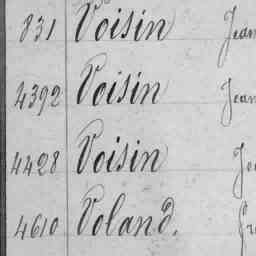 831 Voisin Jean
4392 Voisin Jean
4428 Voisin
4610 Voland.